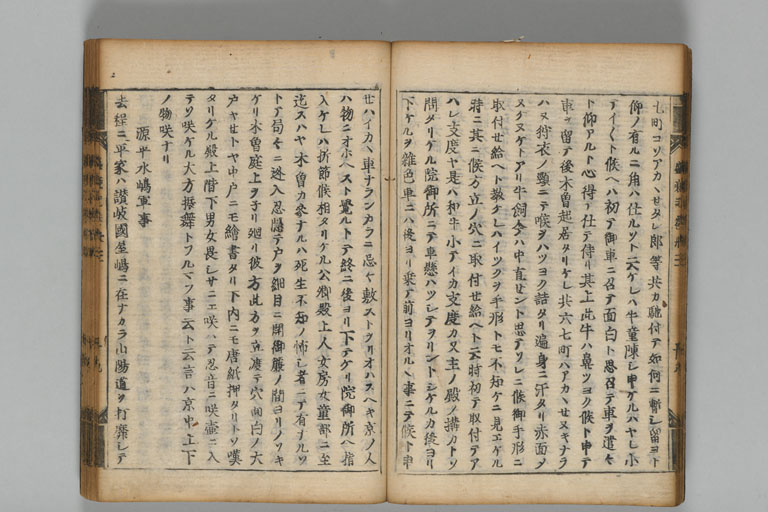 七町コソアカヽセタレ郎等共カ馳付テ如何ニ暫シ留ヨト
仰ノ有ルニ角ハ仕ルソト云ケレハ牛童陳シ申ケルハヤレ小
テイ〳〵ト候ヘハ初テ御車ニ召テ面白ト思召テ車ヲ遣セ
ト仰アルト心得テ仕テ侍リ其上此牛ハ鼻ツヨク候ト申テ
車ヲ留テ後木曽起居タリケレ共六七町ハアカヽセヌキナラ
ハヌ狩衣ノ頸ニテ喉ヲハツヨク詰タリ遍身ニ汗タリ赤面ヲ
スケヌケトアリ牛飼今ハ中直セント思テソレニ候御手形ニ
取付セ給ヘト教ケレハイツクヲ手形トモ不知ケニ見エケル
時ニ其ニ候方立ノ穴ニ取付セ給ヘト云時初テ取付テア
ハレ支度ヤ是ハ和牛小テイカ支度カ又主ノ殿ノ搆カトソ
問タリケル院御所ニテ車懸ハツシテヲリントシケルカ後ヨリ
下ケルヲ雑色車ニハ後ヨリ乗テ前ヨリオルヽ事ニテ候ト申
セハイカヽ車ナランカラニ忌ヤ敷ストヲリオハスヘキ京ノ人
ハ物ニオホヘスト覺ルトテ終ニ後ヨリ下テケリ院御所ヘ指
入ケレハ折節候相タリケル公卿殿上人女房女童部ニ至
迄スハヤ木曽カ參ナルハ死生不知ノ怖シ者ニテ有ナルソ
トテ局々ニ逃入忍隠テ戸ヲ細目ニ開御簾ノ間ヨリノソキ
ケリ木曽庭上ヲ子リ廻リ彼方此方ヲ立渡テ穴面白ノ大
戸ヤセトヤ中戸ニモ繪書タリ下内ニモ唐紙押タリトソ嘆
タリケル殿上階下男女畏シサニエ咲ハテ忍音ニ咲壷ニ入
テソ咲ケル大方振舞トフルマフ事云ト云言ハ京中上下
ノ物咲ナリ
源平水嶋軍事
去程ニ平家ハ讃岐國屋嶋ニ在ナカラ山陽道ヲ打靡シテ